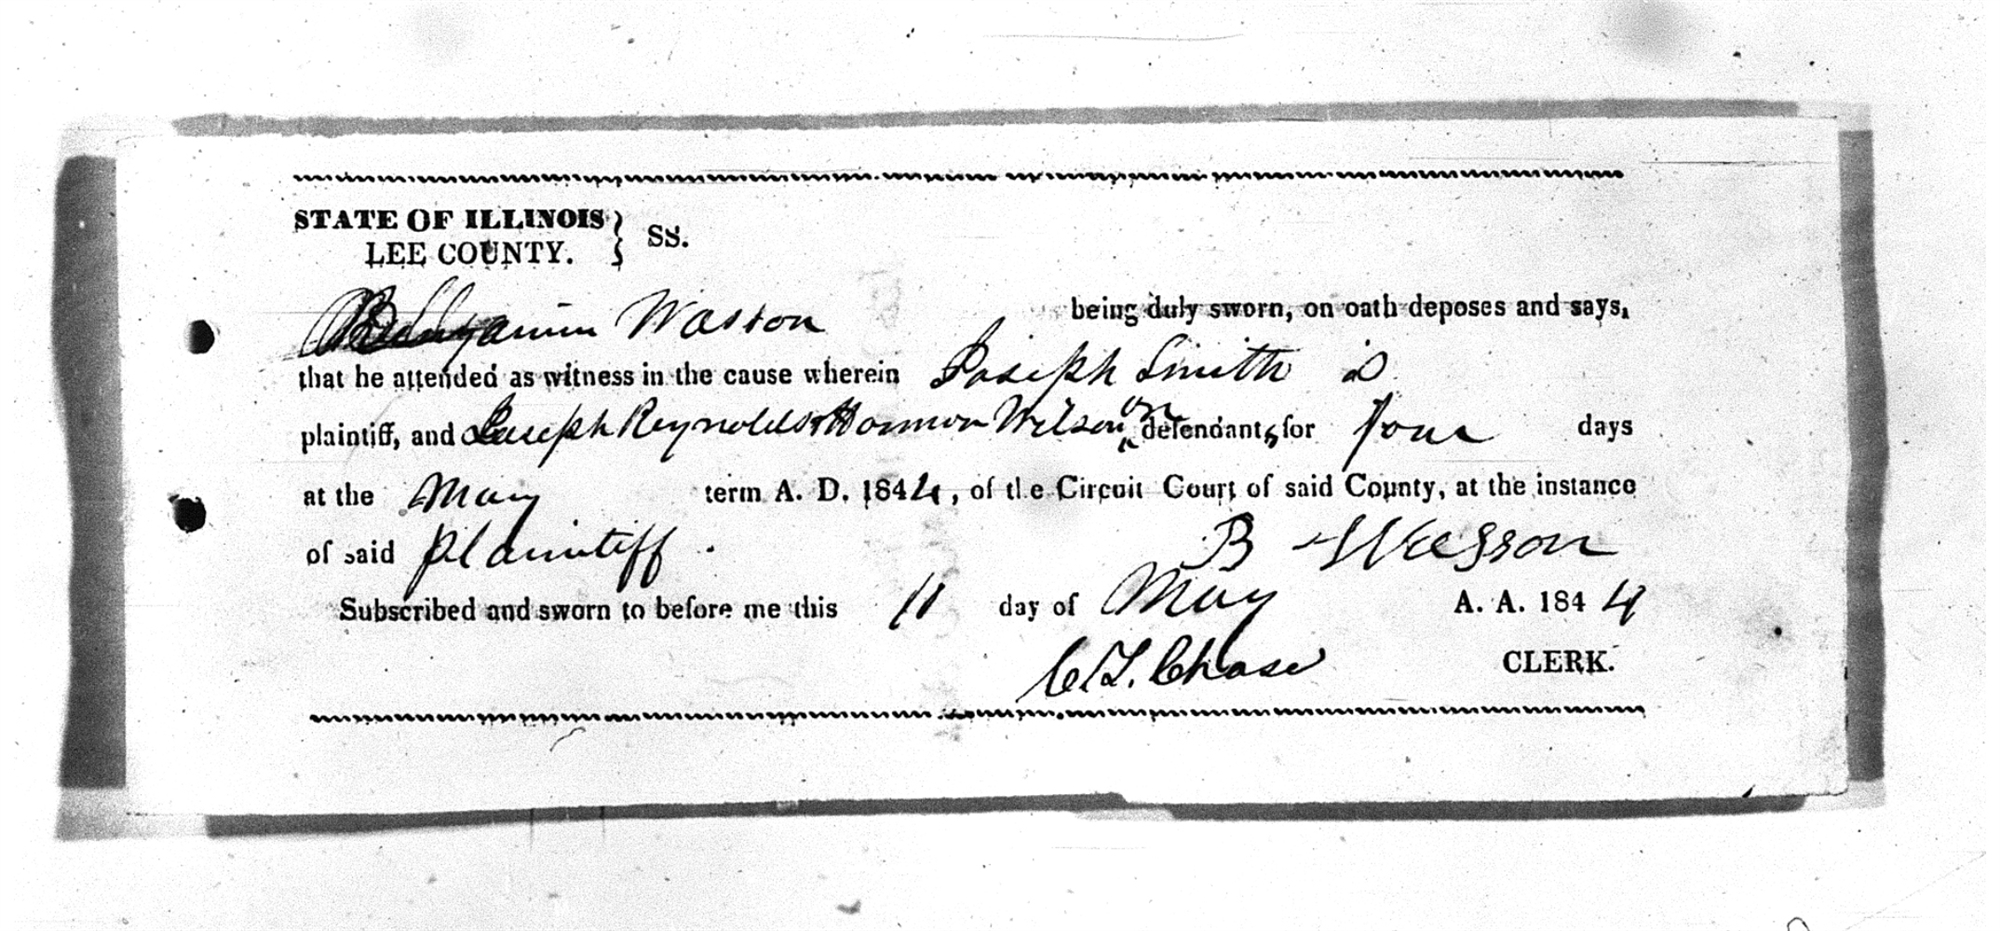 STATE OF ILLINOIS } SS.
LEE COUNTY. }
Benjamin Wasson being duly sworn, on oath deposes and says,
that he attended as witness in the cause wherein Joseph Smith is
plaintiff, and Joseph Reynolds & Harmon Wilson are defendants, for four days
at the May term A. D. 1844, of the Circuit Court of said County, at the instance
of said plaintiff. B Wasson
Subscribed and sworn to before me this 11 day of May A. A. 1844
C. T. Chase CLERK.